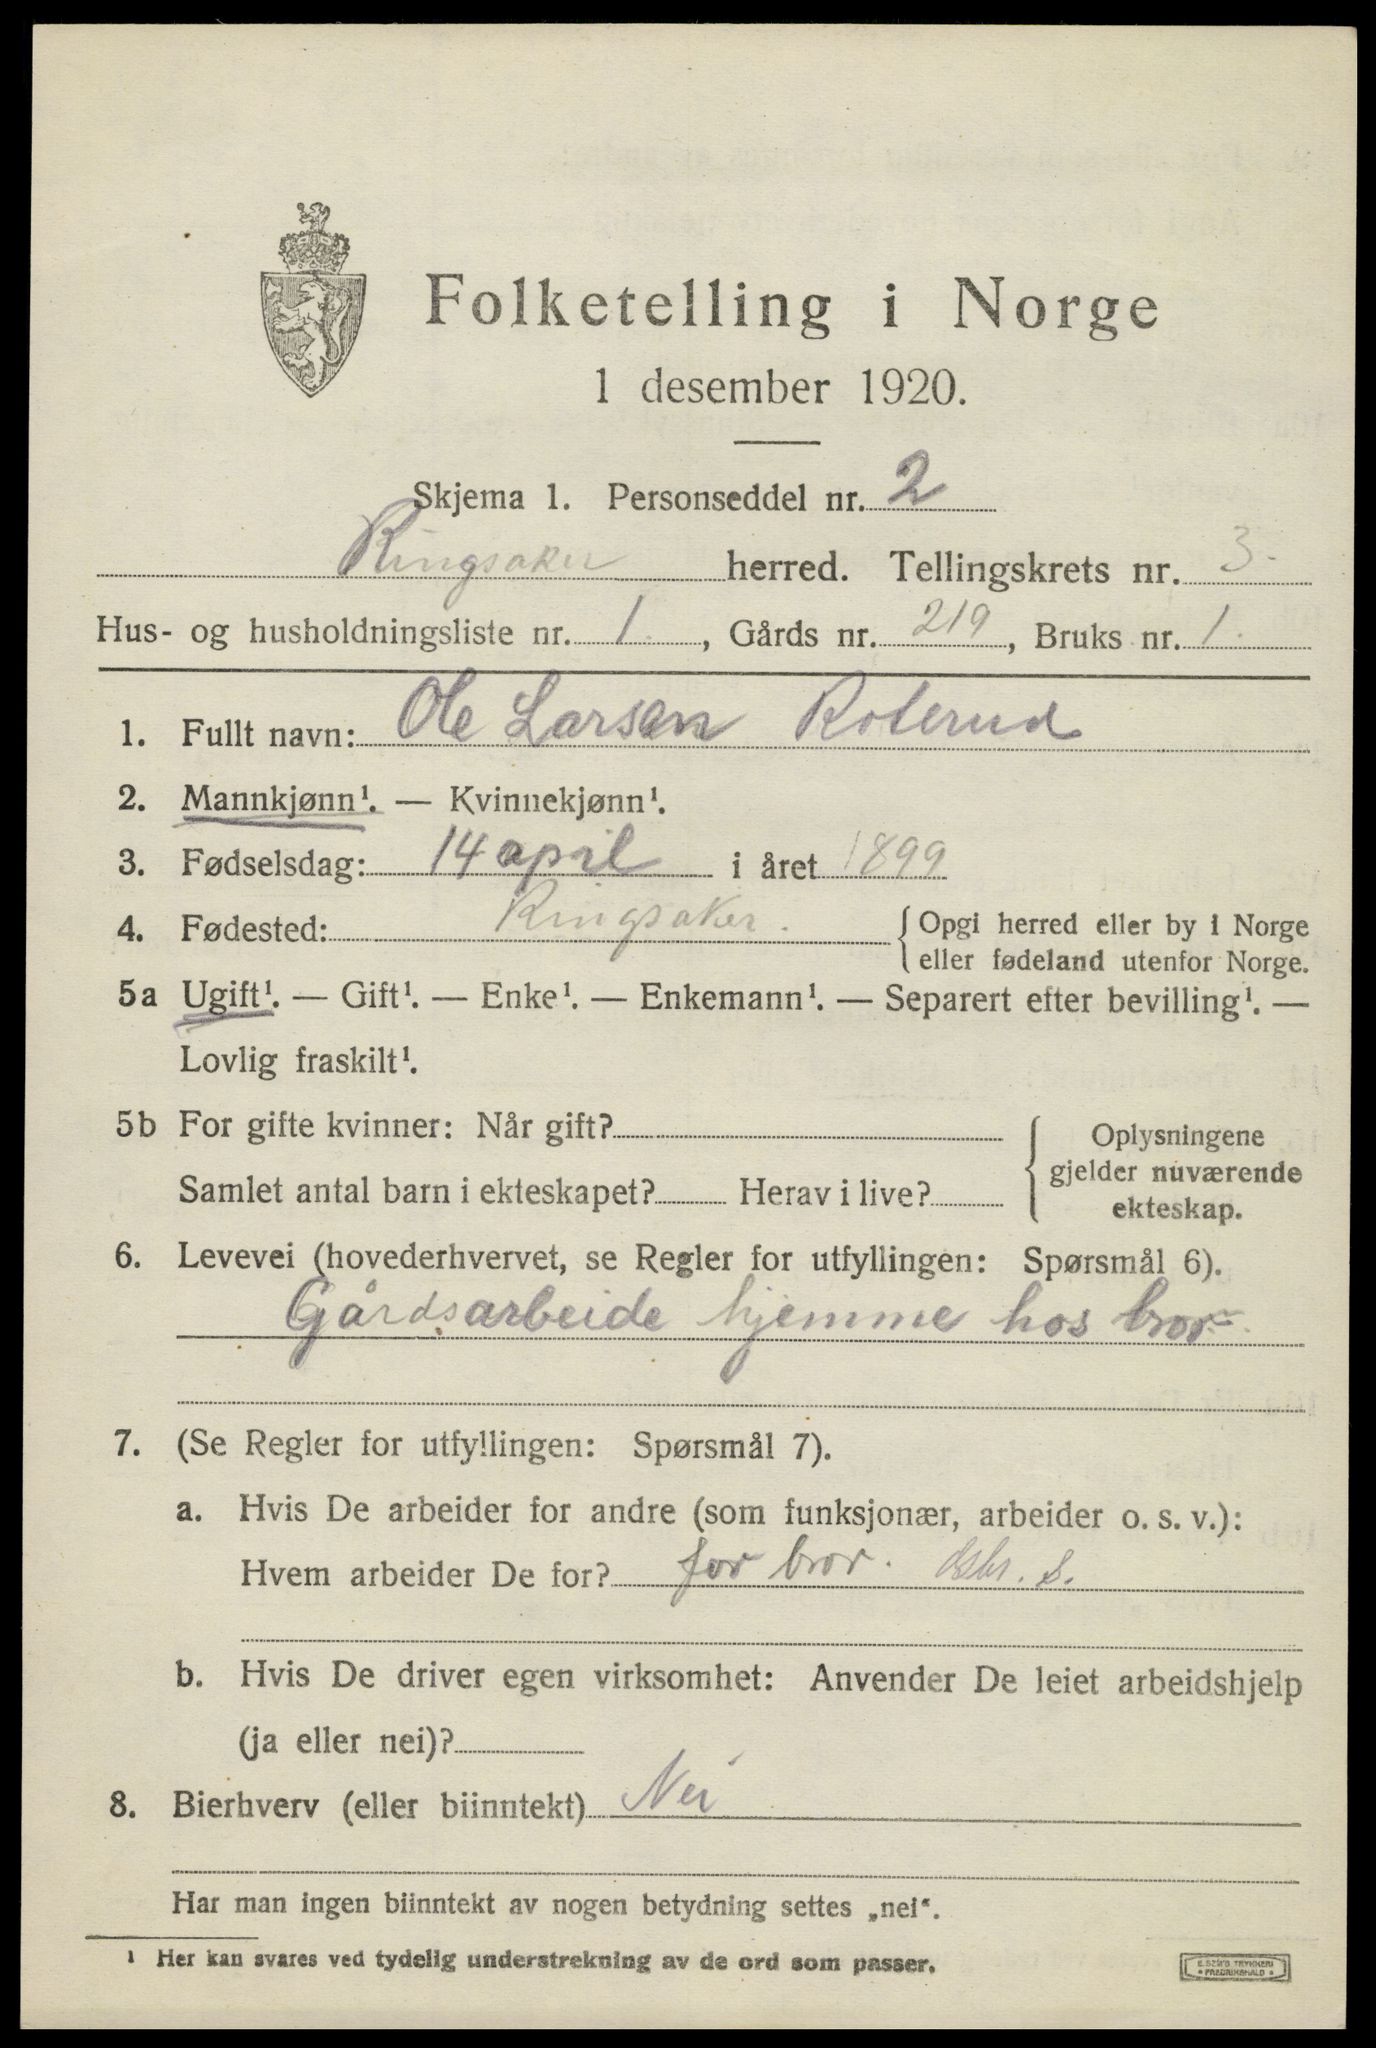 Folketelling i Norge
1 desember 1920.
Skjema 1. Personseddel nr. 2
Ringsaker herred. Tellingskrets nr. 3.
Hus- og husholdningsliste nr. 1., Gårds nr. 219, Bruks nr. 1.
1. Fullt navn: Ole Larsen Roterud
2. Mannkjønn¹. — Kvinnekjønn¹.
3. Fødselsdag: 14 april i året 1899
4. Fødested: Ringsaker. { Opgi herred eller by i Norge
eller fødeland utenfor Norge.
5a Ugift¹. — Gift¹. — Enke¹. — Enkemann¹. — Separert efter bevilling¹. —
Lovlig fraskilt¹.
5b For gifte kvinner: Når gift?
Samlet antal barn i ekteskapet? Herav i live?
{ Oplysningene
gjelder nuværende
ekteskap.
6. Levevei (hovederhvervet, se Regler for utfyllingen: Spørsmål 6).
Gårdsarbeide hjemme hos bror
7. (Se Regler for utfyllingen: Spørsmål 7).
a. Hvis De arbeider for andre (som funksjonær, arbeider o. s. v.):
Hvem arbeider De for? for bror. s.
b. Hvis De driver egen virksomhet: Anvender De leiet arbeidshjelp
(ja eller nei)?
8. Bierhverv (eller biinntekt) Nei
Har man ingen biinntekt av nogen betydning settes „nei“.
¹ Her kan svares ved tydelig understrekning av de ord som passer.
E. SEM'S TRYKKERI
• FREDRIKSHALD •